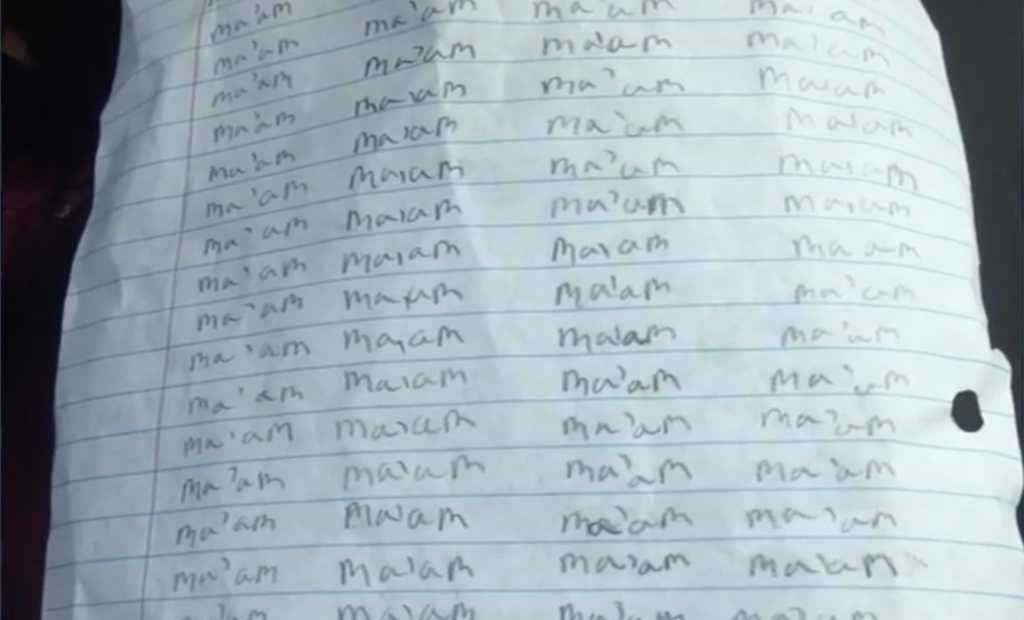 ma'am ma'am ma'am ma'am
ma'am ma'am ma'am ma'am
ma'am ma'am ma'am ma'am
ma'am ma'am ma'am ma'am
ma'am ma'am ma'am ma'am
ma'am ma'am ma'am ma'am
ma'am ma'am ma'am ma am
ma'am ma'am ma'am ma'am
ma'am ma'am ma'am ma'am
ma'am ma'am ma'am ma'am
ma'am ma'am ma'am ma'am
ma'am ma'am ma'am ma'am
ma'am ma'am ma'am ma'am
ma'am ma'am ma'am ma'am
ma'am ma'am ma'am ma'am